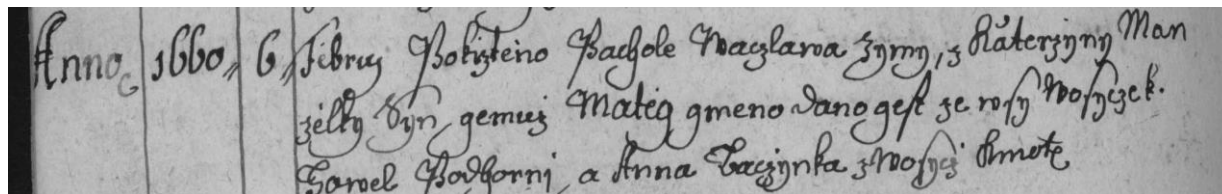 Anno 1660 6 Februarij Pokrzteno Pachole Waczlawa Zymy, z Katerzyny Man
zelky Syn, gemuz Matieg gmeno dano gest ze wsy Wosyczek.
Hawel Podhorni, a Anna z Wosycz Kmote